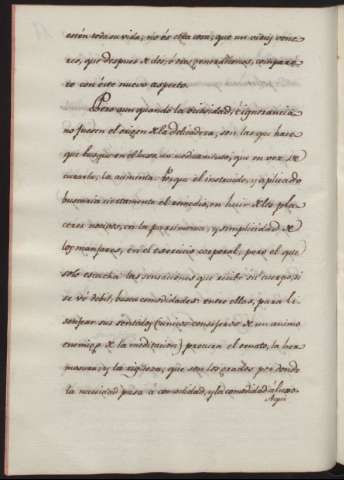 están toda su vida, no és otra cosa, que un virus vene-
reo, que despues de dos, ó tres generaciones, compare-
ce con éste nuevo aspecto.
Pero aun quando la ociosidad, é ignorancia
no fuesen el origen de la delicadeza, son las que hace
que busque en el luxo un medicamento, que en vez de
curarla, la aumenta. Porque el instruído, y aplicado
buscaria ciertamente el remedio, en huir de los pla-
ceres nocivos, en la parsimonia, y simplicidad de
los manjares, én el exercicio corporal; pero el que
solo escucha las sensaciones que recibe su cuerpo, si
se vé debil, busca comodidades: entre ellas, para li-
songear sus sentidos (unicos consejeros de un animo
enemigo de la meditacion) procura el ornato, la her-
mosura, y la riqueza; que son los grados por donde
la necesidad pasa á comodidad, y la comodidad á luxo.
Aqui